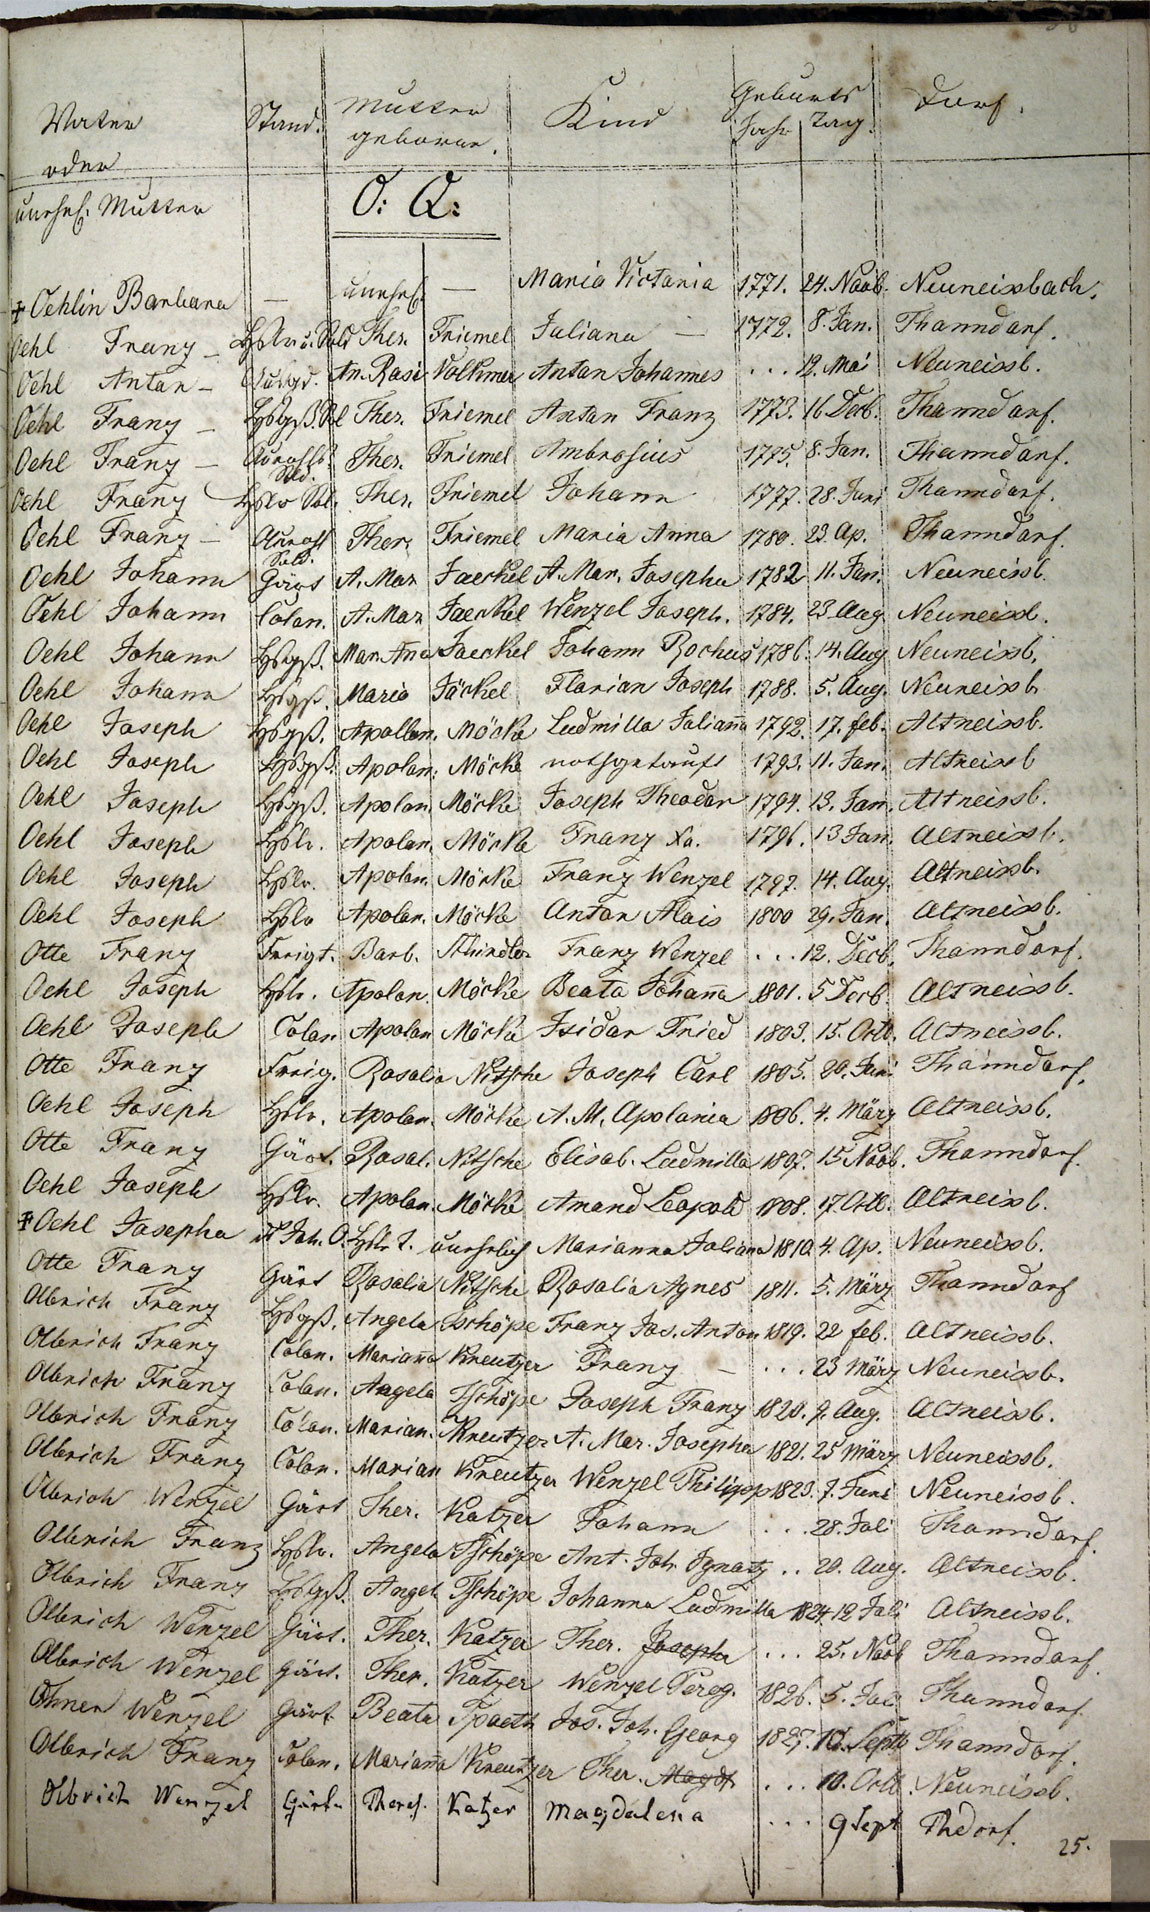 Vater oder unehel. Mutter Stand. Mutter geborne. Kind Geburts Jahr Tag. Dorf.
O: Q:
‡ Oehlin Barbara — unehel. — Maria Victoria 1771. 24. Novb. Neuneissbach.
Oehl Franz — Ther. Friemel Juliana — 1772. 8. Jan. Thanndorf.
Oehl Anton — An. Rosi Volkmer Anton Johannes ... 12. Mai Neuneissb.
Oehl Franz — Ther. Friemel Anton Franz 1773. 16 Decb. Thanndorf.
Oehl Franz — Ther. Friemel Ambrosius 1775. 8. Jan. Thanndorf.
Oehl Franz Ther. Friemel Johann 1777. 28. Juni Thanndorf.
Oehl Franz — Ther. Friemel Maria Anna 1780. 23. Ap. Thanndorf.
Oehl Johann Gärt A. Mar Jaeckel A. Mar. Josepha 1782 11. Jan. Neuneissb.
Oehl Johann Colon. A. Mar Jaeckel Wenzel Joseph. 1784. 23. Aug Neuneissb.
Oehl Johann Hbgß. Mar. Aña Jaeckel Johann Rochus 1786. 14. Aug Neuneissb.
Oehl Johann Hbgß. Maria Jäckel Florian Joseph 1788. 5. Aug. Neuneissb
Oehl Joseph Hbgß. Apollon. Möcke Ludmilla Juliaña 1792. 17. feb. Altneissb.
Oehl Joseph Hbgß. Apolon. Möcke nothgetauft 1793. 11. Jan. Altneissb
Oehl Joseph Hbgß. Apolon. Möcke Joseph Theodor 1794. 13. Jan. Altneissb.
Oehl Joseph Hslr. Apolon. Möcke Franz Xa. 1796. 13 Jan. Altneissb.
Oehl Joseph Hslr. Apolon. Möcke Franz Wenzel 1797. 14. Aug. Altneissb.
Oehl Joseph Hslr Apolon. Möcke Anton Alois 1800 29. Jan. Altneissb.
Otte Franz Freigt. Barb. Franz Wenzel ... 12. Decb. Thanndorf.
Oehl Joseph Hslr. Apolon. Möcke Beata Johaña 1801. 5 Decb. Altneissb.
Oehl Joseph Colon. Apolon Möcke Isidor Fried 1803. 15. Octb. Altneissb.
Otte Franz Freig. Rosalia Nitsche Joseph Carl 1805. 20. Juni Thanndorf.
Oehl Joseph Hslr. Apolon. Möcke A. M. Apolonia 1806. 4. März Altneissb.
Otte Franz Gärt. Rosal. Nitsche Elisab. Ludmilla 1807. 15 Novb. Thanndorf.
Oehl Joseph Hslr. Apolon. Möcke Amand Leopold 1808. 17. Octb. Altneissb.
‡ Oehl Josepha Joh. O. Hslr T. unehelich Marianna Juliana 1810. 4. Ap. Neuneissb.
Otte Franz Gärt Rosalia Nitsche Rosalia Agnes 1811. 5. März Thanndorf
Olbrich Franz Hbgß. Angela Tschöpe Franz Jos. Anton 1819. 22 feb. Altneissb.
Olbrich Franz Colon. Mariaña Kreutzer Franz — ... 23 März Neuneissb.
Olbrich Franz Colon. Angela Tschöpe Joseph Franz 1820. 9. Aug. Altneissb.
Olbrich Franz Colon. Marian. Kreutzer A. Mar. Josepha 1821. 25 März Neuneissb.
Olbrich Franz Colon. Marian Kreutzer Wenzel Philipp 1823. 7. Juni Neuneissb.
Olbrich Wenzel Gärt Ther. Katzer Johann ... 28. Juli Thanndorf.
Olbrich Franz Hslr. Angela Tschöpe Ant. Joh. Ignatz .. 20. Aug. Altneissb.
Olbrich Franz Hbgß. Angel. Tschöpe Johanna Ludmilla 1824. 12. Juli Altneissb.
Olbrich Wenzel Gärt. Ther. Katzer Ther. Josepha ... 25. Novb Thanndorf.
Olbrich Wenzel Gärt. Ther. Katzer Wenzel Pereg. 1826. 5. Juli Thanndorf
Ohner Wenzel Gärt Beata Spaeth Jos. Joh. Georg 1827. Septb Thanndorf.
Olbrich Franz Colon. Mariaña Kreutzer Ther. Magd. ... 10. Octb. Neuneissb.
Olbrich Wenzel Gärtn Theres. Katzer Magdalena ... 9 Sept Thdorf.
25.